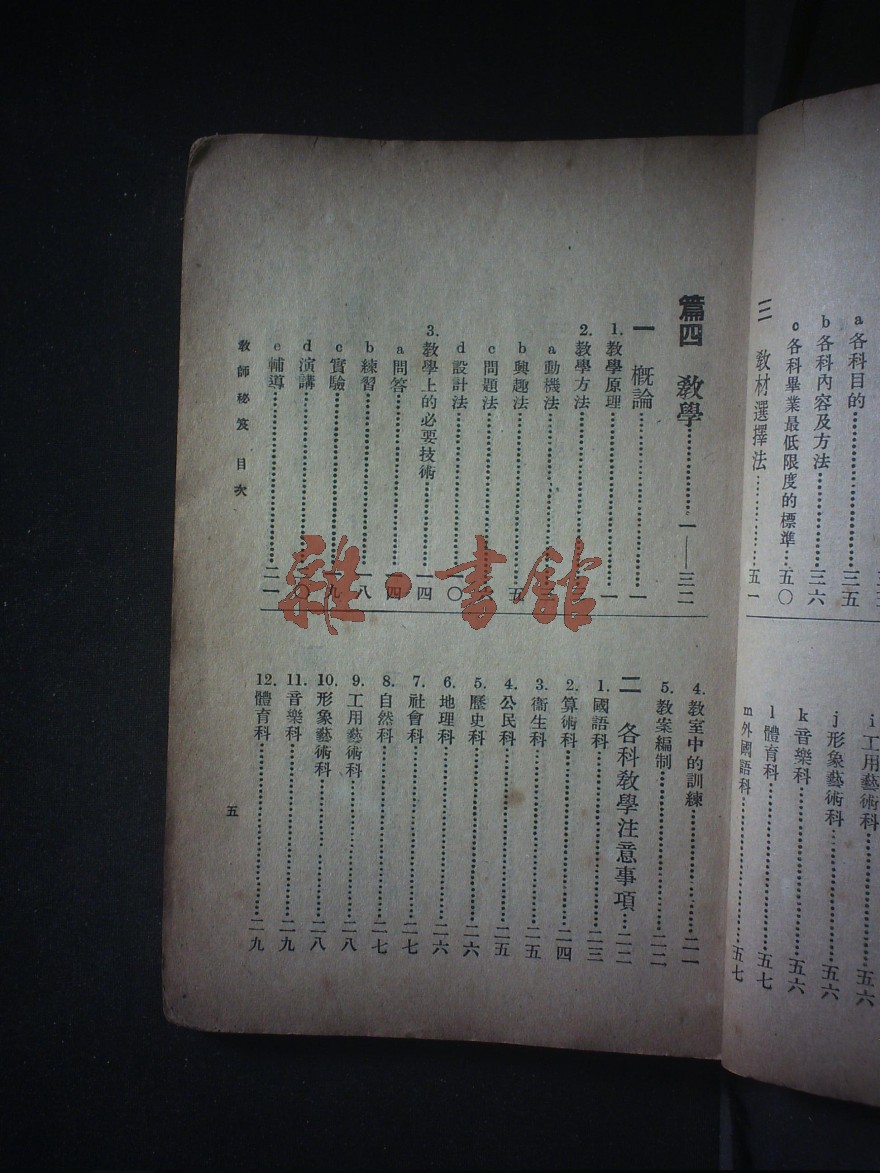 a 各科目的……三五
b 各科內容及方法……三六
c 各科畢業最低限度的標準……五〇
三 教材選擇法……五一
i 工用藝術科……五六
j 形象藝術科……五六
k 音樂科……五六
l 體育科……五七
m 外國語科……五七
篇四 教學……一——三二
一 概論……一
1. 教學原理……一
2. 教學方法
a 動機法
b 興趣法……五
c 問題法
d 設計法……一〇
3. 教學上的必要技術……一四
a 問答……一四
b 練習……一八
c 實驗……一九
d 演講
e 輔導……二一
4. 教室中的訓練……二一
5. 教案編制……二二
二 各科教學注意事項……二二
1. 國語科……二三
2. 算術科……二四
3. 衞生科……二五
4. 公民科……二五
5. 歷史科……二六
6. 地理科……二六
7. 社會科……二七
8. 自然科……二七
9. 工用藝術科……二八
10. 形象藝術科……二八
11. 音樂科……二九
12. 體育科……二九
教師秘笈 目次
五
雜·書館